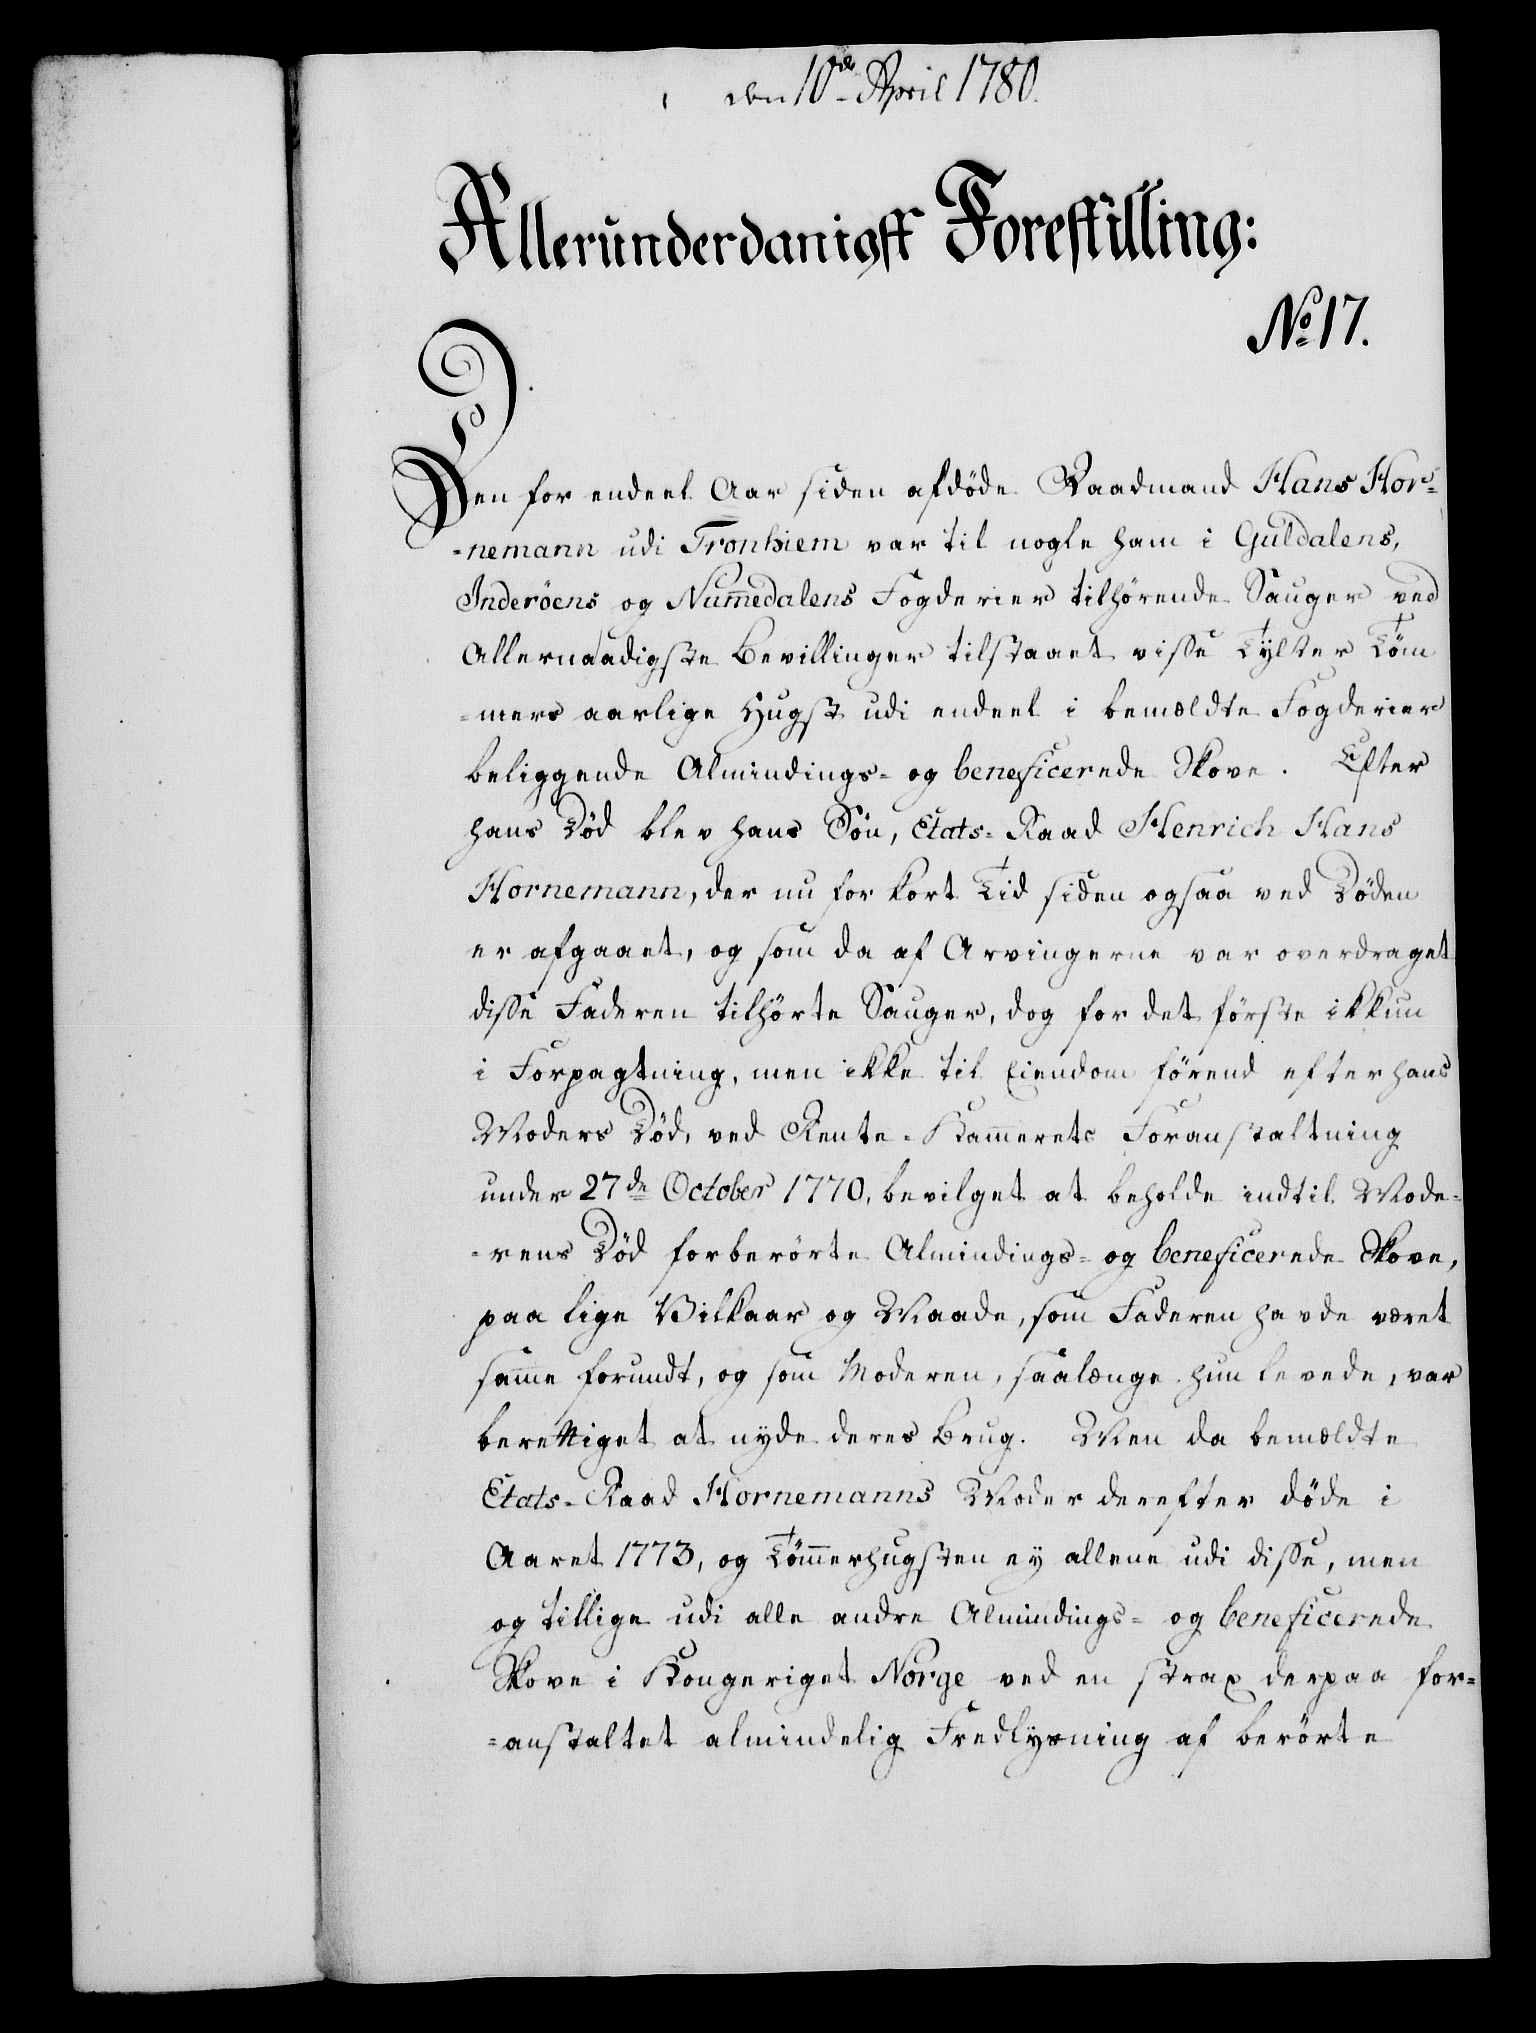 den 10de April 1780.
Allerunderdanigst Forestilling:
No 17.
Den for endeel Aar siden afdöde Raadmand Hans Hor-
-nemann udi Tronhiem var til nogle ham i Guldalens,
Inderöens og Nummedalens Fogderier tilhørende Sauger ved
Allernaadigste Bevillinger tilstaaet visse Tylter Töm
-mers aarlige Hugst udi endeel i bemældte Fogderier
beliggende Almindings- og beneficerede Skove. Efter
hans Död blev hans Sön, Etats-Raad Henrich Hans
Hornemann, der nu for kort Tid siden ogsaa ved Döden
er afgaaet, og som da af Arvingerne var overdraget
disse Faderen tilhörte Sauger, dog for det förste ikkun
i Forpagtning, men ikke til Eiendom förend efter hans
Moders Död, ved Rente-Kammerets Foranstaltning
under 27de October 1770, bevilget at beholde indtil Mode-
-rens Död forberörte Almindings- og beneficerede Skove,
paa lige Vilkaar og Maade, som Faderen havde været
samme forundt, og som Moderen, saalænge hun levede, var
berettiget at nyde deres Brug. Men da bemældte
Etats-Raad Hornemanns Moder derefter döde i
Aaret 1773, og Tömmerhugsten ey allene udi disse, men
og tillige udi alle andre Almindings- og beneficerede
Skove i Kongeriget Norge ved en strax derpaa for-
-anstaltet almindelig Fredlysning af berörte